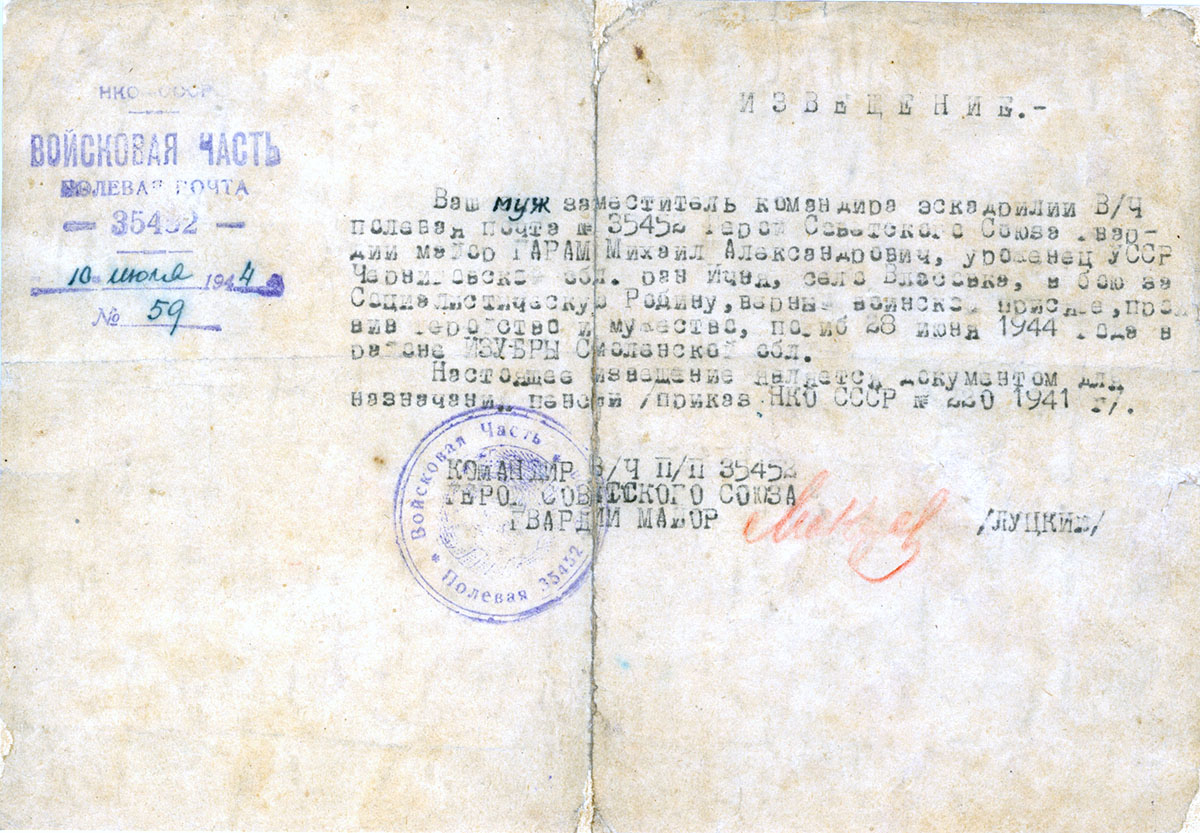 НКО СССР
ВОЙСКОВАЯ ЧАСТЬ
ПОЛЕВАЯ ПОЧТА
— 35432 —
10 июля 1944 г.
№ 59
ИЗВЕЩЕНИЕ.-
Ваш муж заместитель командира эскадрилии В/Ч
полевая почта № 35452 Герой Советского Союза гвар-
дии майор ГАРАМ Михаил Александрович, уроженец УССР
Черниговской обл. ран Ичня, село Власовка, в бою за
Социалистическую Родину, верный воинской присяге, проя
вив геройство и мужество, погиб 28 июня 1944 года в
районе ИЗУБРЫ Смоленской обл.
Настоящее извещение является документом для
назначания пенсии /приказ НКО СССР № 220 1941 г/.
КОМАНДИР В/Ч П/П 35452
ГЕРОЙ СОВЕТСКОГО СОЮЗА
ГВАРДИИ МАЙОР /ЛУЦКИЙ/
Войсковая Часть * Полевая 35432 *